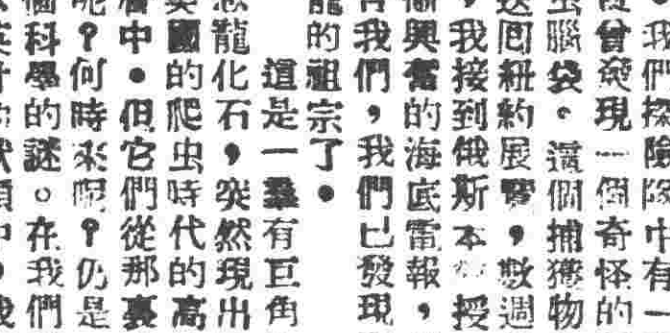 。我們探險隊中有一
曾發現一個奇怪的
腦袋。這個捕獲物
送回紐約展覽，數週
，我接到俄斯本教授
興奮的海底電報，
我們，我們已發現
龍的祖宗了。
這是一羣有巨角
恐龍化石，突然現出
英國的爬虫時代的高
層中。但它們從那裏
呢？何時來呢？仍是
個科學的謎。在我們